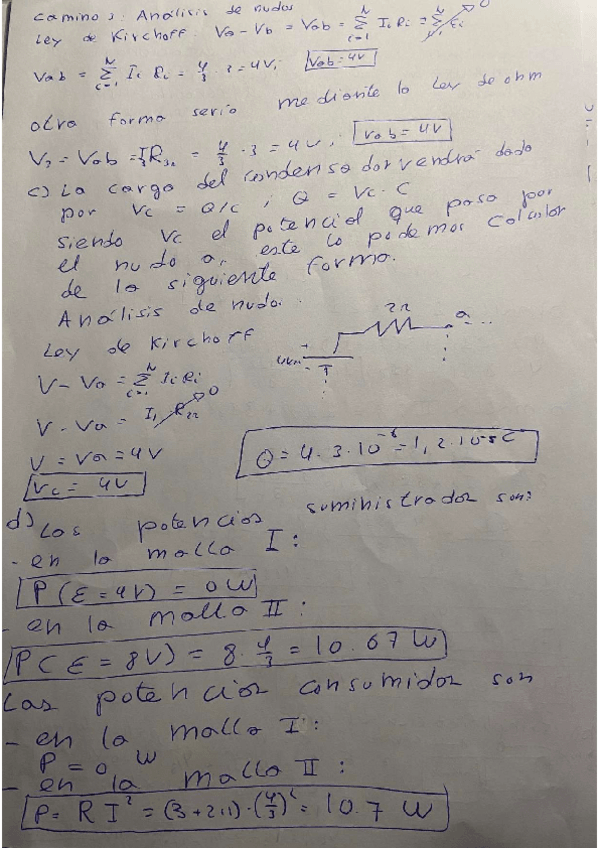 camino 3: Análisis de nudos
Ley de Kirchoff. Va - Vb = Vab = Σ Ii Ri = Σ εi 0
Vab = Σ Ii Ri = 4/3 · 3 = 4V; Vab = 4V
otra forma seria mediante la Ley de ohm
V2 = Vab = I3 R3Ω = 4/3 · 3 = 4V; Vab = 4V
c) La carga del condensador vendrá dado
por Vc = Q/C ; Q = Vc · C
siendo Vc el potencial que pasa por
el nudo a, este lo podemos calcular
de la siguiente forma.
Análisis de nudo.
2Ω a
Ley de Kirchoff
V - Va = Σ Ii Ri
V - Va = I1 R2Ω 0
V = Va = 4V
Vc = 4V
Q = 4 · 3 · 10⁻⁶ = 1,2 · 10⁻⁵ C
d) Las potencias suministradas son:
- en la malla I:
P(ε = 4V) = 0W
- en la malla II:
P(ε = 8V) = 8 · 4/3 = 10.67 W
Las potencias consumidas son
- en la malla I:
P = 0 W
- en la malla II:
P = R I² = (3+2+1) · (4/3)² = 10.7 W